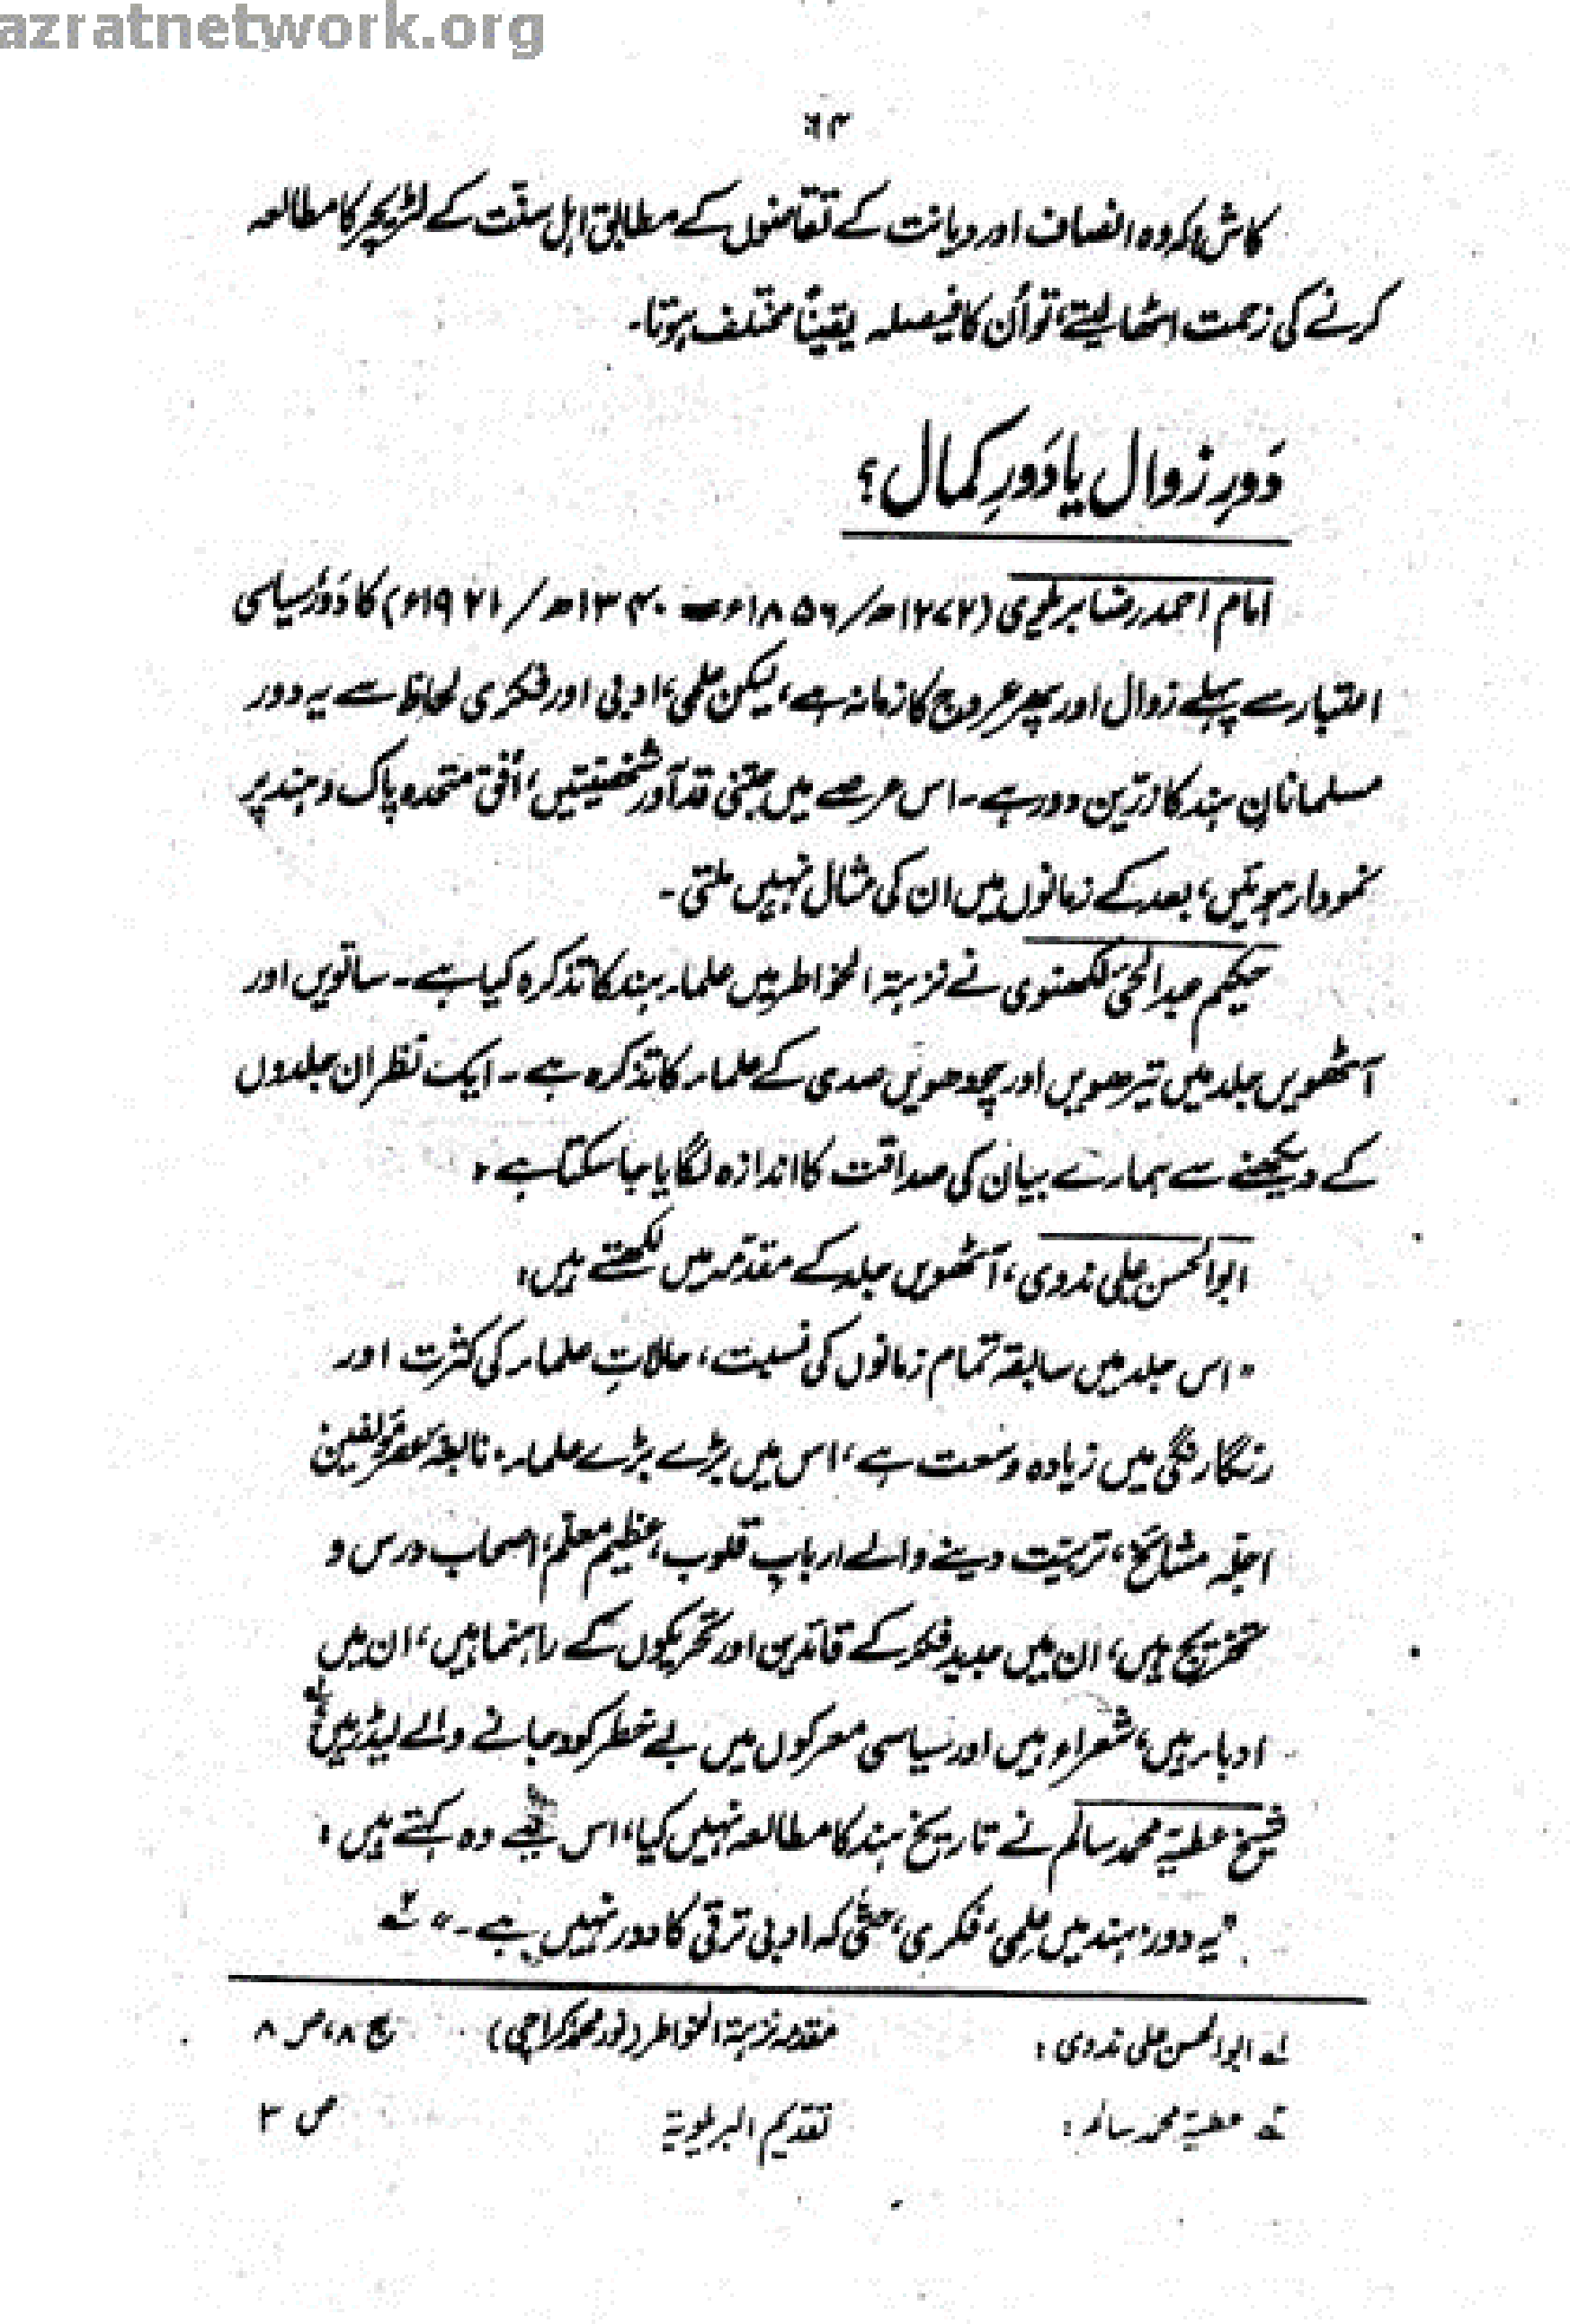 azratnetwork.org
۶۴
کاش! کہ وہ انصاف اور دیانت کے تقاضوں کے مطابق اہل سنّت کے لٹریچر کا مطالعہ
کرنے کی زحمت اٹھا لیتے، تو اُن کا فیصلہ یقیناً مختلف ہوتا۔
دَورِ زوال یا دَورِ کمال؟
امام احمد رضا بریلوی (۱۲۷۲ھ/۱۸۵۶ء — ۱۳۴۰ھ/۱۹۲۱ء) کا دَور سیاسی
اعتبار سے پہلے زوال اور پھر عروج کا زمانہ ہے، لیکن علمی، ادبی اور فکری لحاظ سے یہ دور
مسلمانانِ ہند کا زرّین دور ہے۔ اس عرصے میں جتنی قدآور شخصیتیں، اُفق متحدہ پاک و ہند پر
نمودار ہوئیں، بعد کے زمانوں میں ان کی مثال نہیں ملتی۔
حکیم عبدالحئ لکھنوی نے نزہۃ الخواطر میں علماء ہند کا تذکرہ کیا ہے۔ ساتویں اور
آٹھویں جلد میں تیرھویں اور چودھویں صدی کے علماء کا تذکرہ ہے۔ ایک نظر ان جلدوں
کے دیکھنے سے ہمارے بیان کی صداقت کا اندازہ لگایا جا سکتا ہے،
ابوالحسن علی ندوی، آٹھویں جلد کے مقدّمہ میں لکھتے ہیں:
"اس جلد میں سابقہ تمام زمانوں کی نسبت، حالاتِ علماء کی کثرت اور
رنگارنگی میں زیادہ وسعت ہے، اس میں بڑے بڑے علماء، نابغۂ عصر مؤلفین
اجلّہ مشائخ، تربیّت دینے والے اربابِ قلوب، عظیم معلّم، اصحاب درس و
تخریج ہیں، ان میں جدید فکر کے قائدین اور تحریکوں کے راہنما ہیں، ان میں
ادباء ہیں، شعراء ہیں اور سیاسی معرکوں میں بے خطر کود جانے والے لیڈر ہیں" لہ
شیخ عطیۃ محمد سالم نے تاریخ ہند کا مطالعہ نہیں کیا، اس لیے وہ کہتے ہیں:
"یہ دور، ہند میں علمی، فکری، حتّٰی کہ ادبی ترقی کا دور نہیں ہے۔" ۲ہ
لہ ابوالحسن علی ندوی: مقدمہ نزہۃ الخواطر (نور محمد کراچی) ج ۸، ص ۸
۲ہ عطیۃ محمد سالم: تقدیم البریلویۃ ص ۳